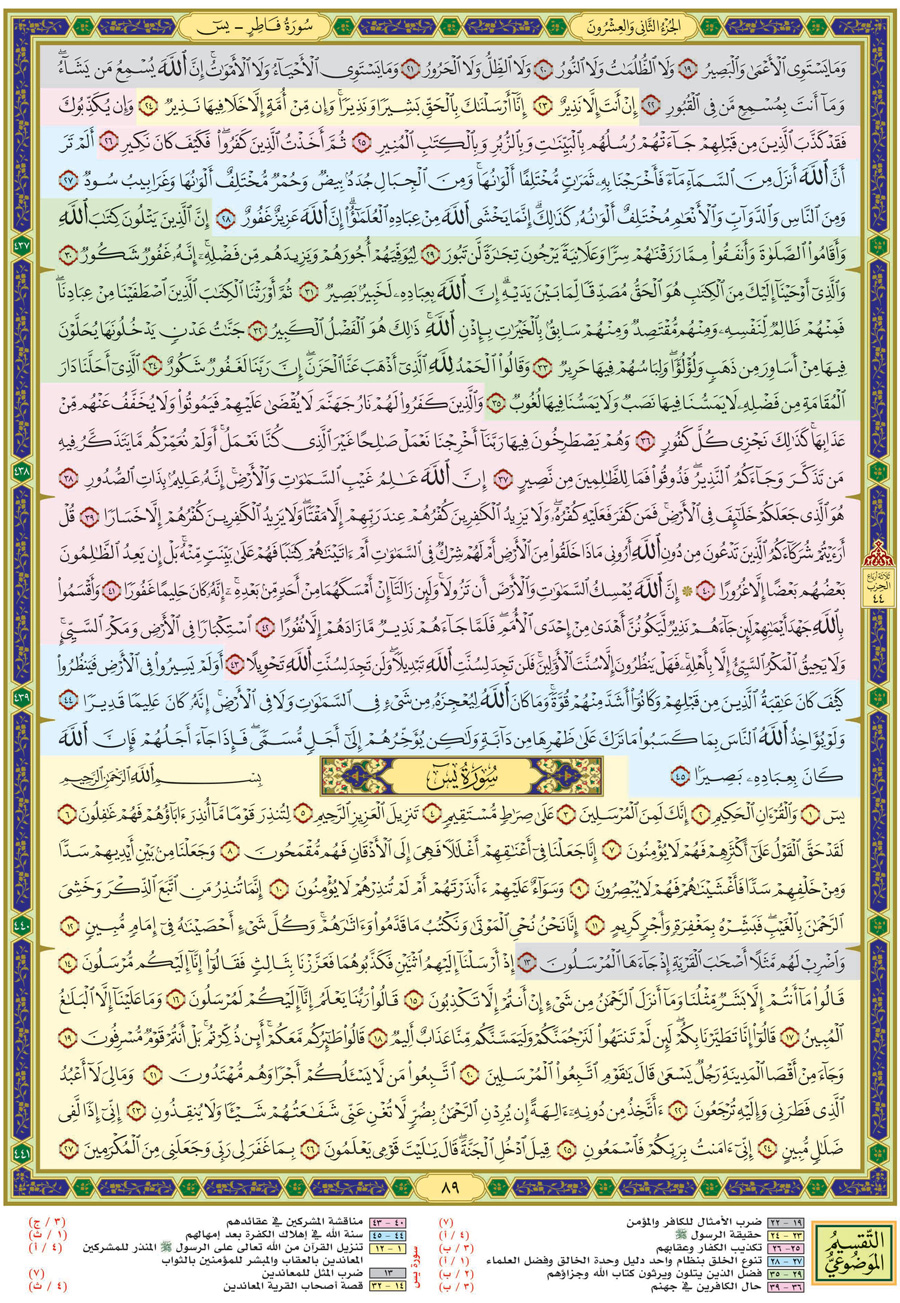 الجُزْءُ الثَّانِي وَالعِشْرُونَ
سُورَةُ فَاطِرٍ - يسٓ
وَمَا يَسْتَوِى ٱلْأَعْمَىٰ وَٱلْبَصِيرُ ١٩ وَلَا ٱلظُّلُمَٰتُ وَلَا ٱلنُّورُ ٢٠ وَلَا ٱلظِّلُّ وَلَا ٱلْحَرُورُ ٢١ وَمَا يَسْتَوِى ٱلْأَحْيَآءُ وَلَا ٱلْأَمْوَٰتُ إِنَّ ٱللَّهَ يُسْمِعُ مَن يَشَآءُ
وَمَآ أَنتَ بِمُسْمِعٍ مَّن فِى ٱلْقُبُورِ ٢٢ إِنْ أَنتَ إِلَّا نَذِيرٌ ٢٣ إِنَّآ أَرْسَلْنَٰكَ بِٱلْحَقِّ بَشِيرًا وَنَذِيرًا وَإِن مِّنْ أُمَّةٍ إِلَّا خَلَا فِيهَا نَذِيرٌ ٢٤ وَإِن يُكَذِّبُوكَ
فَقَدْ كَذَّبَ ٱلَّذِينَ مِن قَبْلِهِمْ جَآءَتْهُمْ رُسُلُهُم بِٱلْبَيِّنَٰتِ وَبِٱلزُّبُرِ وَبِٱلْكِتَٰبِ ٱلْمُنِيرِ ٢٥ ثُمَّ أَخَذْتُ ٱلَّذِينَ كَفَرُوا۟ فَكَيْفَ كَانَ نَكِيرِ ٢٦ أَلَمْ تَرَ
أَنَّ ٱللَّهَ أَنزَلَ مِنَ ٱلسَّمَآءِ مَآءً فَأَخْرَجْنَا بِهِۦ ثَمَرَٰتٍ مُّخْتَلِفًا أَلْوَٰنُهَا وَمِنَ ٱلْجِبَالِ جُدَدٌۢ بِيضٌ وَحُمْرٌ مُّخْتَلِفٌ أَلْوَٰنُهَا وَغَرَابِيبُ سُودٌ ٢٧
وَمِنَ ٱلنَّاسِ وَٱلدَّوَآبِّ وَٱلْأَنْعَٰمِ مُخْتَلِفٌ أَلْوَٰنُهُۥ كَذَٰلِكَ إِنَّمَا يَخْشَى ٱللَّهَ مِنْ عِبَادِهِ ٱلْعُلَمَٰٓؤُا۟ إِنَّ ٱللَّهَ عَزِيزٌ غَفُورٌ ٢٨ إِنَّ ٱلَّذِينَ يَتْلُونَ كِتَٰبَ ٱللَّهِ
وَأَقَامُوا۟ ٱلصَّلَوٰةَ وَأَنفَقُوا۟ مِمَّا رَزَقْنَٰهُمْ سِرًّا وَعَلَانِيَةً يَرْجُونَ تِجَٰرَةً لَّن تَبُورَ ٢٩ لِيُوَفِّيَهُمْ أُجُورَهُمْ وَيَزِيدَهُم مِّن فَضْلِهِۦٓ إِنَّهُۥ غَفُورٌ شَكُورٌ ٣٠
وَٱلَّذِىٓ أَوْحَيْنَآ إِلَيْكَ مِنَ ٱلْكِتَٰبِ هُوَ ٱلْحَقُّ مُصَدِّقًا لِّمَا بَيْنَ يَدَيْهِ إِنَّ ٱللَّهَ بِعِبَادِهِۦ لَخَبِيرٌۢ بَصِيرٌ ٣١ ثُمَّ أَوْرَثْنَا ٱلْكِتَٰبَ ٱلَّذِينَ ٱصْطَفَيْنَا مِنْ عِبَادِنَا
فَمِنْهُمْ ظَالِمٌ لِّنَفْسِهِۦ وَمِنْهُم مُّقْتَصِدٌ وَمِنْهُمْ سَابِقٌۢ بِٱلْخَيْرَٰتِ بِإِذْنِ ٱللَّهِ ذَٰلِكَ هُوَ ٱلْفَضْلُ ٱلْكَبِيرُ ٣٢ جَنَّٰتُ عَدْنٍ يَدْخُلُونَهَا يُحَلَّوْنَ
فِيهَا مِنْ أَسَاوِرَ مِن ذَهَبٍ وَلُؤْلُؤًا وَلِبَاسُهُمْ فِيهَا حَرِيرٌ ٣٣ وَقَالُوا۟ ٱلْحَمْدُ لِلَّهِ ٱلَّذِىٓ أَذْهَبَ عَنَّا ٱلْحَزَنَ إِنَّ رَبَّنَا لَغَفُورٌ شَكُورٌ ٣٤ ٱلَّذِىٓ أَحَلَّنَا دَارَ
ٱلْمُقَامَةِ مِن فَضْلِهِۦ لَا يَمَسُّنَا فِيهَا نَصَبٌ وَلَا يَمَسُّنَا فِيهَا لُغُوبٌ ٣٥ وَٱلَّذِينَ كَفَرُوا۟ لَهُمْ نَارُ جَهَنَّمَ لَا يُقْضَىٰ عَلَيْهِمْ فَيَمُوتُوا۟ وَلَا يُخَفَّفُ عَنْهُم مِّنْ
عَذَابِهَا كَذَٰلِكَ نَجْزِى كُلَّ كَفُورٍ ٣٦ وَهُمْ يَصْطَرِخُونَ فِيهَا رَبَّنَآ أَخْرِجْنَا نَعْمَلْ صَٰلِحًا غَيْرَ ٱلَّذِى كُنَّا نَعْمَلُ أَوَلَمْ نُعَمِّرْكُم مَّا يَتَذَكَّرُ فِيهِ
مَن تَذَكَّرَ وَجَآءَكُمُ ٱلنَّذِيرُ فَذُوقُوا۟ فَمَا لِلظَّٰلِمِينَ مِن نَّصِيرٍ ٣٧ إِنَّ ٱللَّهَ عَٰلِمُ غَيْبِ ٱلسَّمَٰوَٰتِ وَٱلْأَرْضِ إِنَّهُۥ عَلِيمٌۢ بِذَاتِ ٱلصُّدُورِ ٣٨
هُوَ ٱلَّذِى جَعَلَكُمْ خَلَٰٓئِفَ فِى ٱلْأَرْضِ فَمَن كَفَرَ فَعَلَيْهِ كُفْرُهُۥ وَلَا يَزِيدُ ٱلْكَٰفِرِينَ كُفْرُهُمْ عِندَ رَبِّهِمْ إِلَّا مَقْتًا وَلَا يَزِيدُ ٱلْكَٰفِرِينَ كُفْرُهُمْ إِلَّا خَسَارًا ٣٩ قُلْ
أَرَءَيْتُمْ شُرَكَآءَكُمُ ٱلَّذِينَ تَدْعُونَ مِن دُونِ ٱللَّهِ أَرُونِى مَاذَا خَلَقُوا۟ مِنَ ٱلْأَرْضِ أَمْ لَهُمْ شِرْكٌ فِى ٱلسَّمَٰوَٰتِ أَمْ ءَاتَيْنَٰهُمْ كِتَٰبًا فَهُمْ عَلَىٰ بَيِّنَتٍ مِّنْهُ بَلْ إِن يَعِدُ ٱلظَّٰلِمُونَ
بَعْضُهُم بَعْضًا إِلَّا غُرُورًا ٤٠ ۞ إِنَّ ٱللَّهَ يُمْسِكُ ٱلسَّمَٰوَٰتِ وَٱلْأَرْضَ أَن تَزُولَا وَلَئِن زَالَتَآ إِنْ أَمْسَكَهُمَا مِنْ أَحَدٍ مِّنۢ بَعْدِهِۦٓ إِنَّهُۥ كَانَ حَلِيمًا غَفُورًا ٤١ وَأَقْسَمُوا۟
بِٱللَّهِ جَهْدَ أَيْمَٰنِهِمْ لَئِن جَآءَهُمْ نَذِيرٌ لَّيَكُونُنَّ أَهْدَىٰ مِنْ إِحْدَى ٱلْأُمَمِ فَلَمَّا جَآءَهُمْ نَذِيرٌ مَّا زَادَهُمْ إِلَّا نُفُورًا ٤٢ ٱسْتِكْبَارًا فِى ٱلْأَرْضِ وَمَكْرَ ٱلسَّيِّئِ
وَلَا يَحِيقُ ٱلْمَكْرُ ٱلسَّيِّئُ إِلَّا بِأَهْلِهِۦ فَهَلْ يَنظُرُونَ إِلَّا سُنَّتَ ٱلْأَوَّلِينَ فَلَن تَجِدَ لِسُنَّتِ ٱللَّهِ تَبْدِيلًا وَلَن تَجِدَ لِسُنَّتِ ٱللَّهِ تَحْوِيلًا ٤٣ أَوَلَمْ يَسِيرُوا۟ فِى ٱلْأَرْضِ فَيَنظُرُوا۟
كَيْفَ كَانَ عَٰقِبَةُ ٱلَّذِينَ مِن قَبْلِهِمْ وَكَانُوٓا۟ أَشَدَّ مِنْهُمْ قُوَّةً وَمَا كَانَ ٱللَّهُ لِيُعْجِزَهُۥ مِن شَىْءٍ فِى ٱلسَّمَٰوَٰتِ وَلَا فِى ٱلْأَرْضِ إِنَّهُۥ كَانَ عَلِيمًا قَدِيرًا ٤٤
وَلَوْ يُؤَاخِذُ ٱللَّهُ ٱلنَّاسَ بِمَا كَسَبُوا۟ مَا تَرَكَ عَلَىٰ ظَهْرِهَا مِن دَآبَّةٍ وَلَٰكِن يُؤَخِّرُهُمْ إِلَىٰٓ أَجَلٍ مُّسَمًّى فَإِذَا جَآءَ أَجَلُهُمْ فَإِنَّ ٱللَّهَ
كَانَ بِعِبَادِهِۦ بَصِيرًۢا ٤٥
سُورَةُ يسٓ
بِسْمِ ٱللَّهِ ٱلرَّحْمَٰنِ ٱلرَّحِيمِ
يسٓ ١ وَٱلْقُرْءَانِ ٱلْحَكِيمِ ٢ إِنَّكَ لَمِنَ ٱلْمُرْسَلِينَ ٣ عَلَىٰ صِرَٰطٍ مُّسْتَقِيمٍ ٤ تَنزِيلَ ٱلْعَزِيزِ ٱلرَّحِيمِ ٥ لِتُنذِرَ قَوْمًا مَّآ أُنذِرَ ءَابَآؤُهُمْ فَهُمْ غَٰفِلُونَ ٦
لَقَدْ حَقَّ ٱلْقَوْلُ عَلَىٰٓ أَكْثَرِهِمْ فَهُمْ لَا يُؤْمِنُونَ ٧ إِنَّا جَعَلْنَا فِىٓ أَعْنَٰقِهِمْ أَغْلَٰلًا فَهِىَ إِلَى ٱلْأَذْقَانِ فَهُم مُّقْمَحُونَ ٨ وَجَعَلْنَا مِنۢ بَيْنِ أَيْدِيهِمْ سَدًّا
وَمِنْ خَلْفِهِمْ سَدًّا فَأَغْشَيْنَٰهُمْ فَهُمْ لَا يُبْصِرُونَ ٩ وَسَوَآءٌ عَلَيْهِمْ ءَأَنذَرْتَهُمْ أَمْ لَمْ تُنذِرْهُمْ لَا يُؤْمِنُونَ ١٠ إِنَّمَا تُنذِرُ مَنِ ٱتَّبَعَ ٱلذِّكْرَ وَخَشِىَ
ٱلرَّحْمَٰنَ بِٱلْغَيْبِ فَبَشِّرْهُ بِمَغْفِرَةٍ وَأَجْرٍ كَرِيمٍ ١١ إِنَّا نَحْنُ نُحْىِ ٱلْمَوْتَىٰ وَنَكْتُبُ مَا قَدَّمُوا۟ وَءَاثَٰرَهُمْ وَكُلَّ شَىْءٍ أَحْصَيْنَٰهُ فِىٓ إِمَامٍ مُّبِينٍ ١٢
وَٱضْرِبْ لَهُم مَّثَلًا أَصْحَٰبَ ٱلْقَرْيَةِ إِذْ جَآءَهَا ٱلْمُرْسَلُونَ ١٣ إِذْ أَرْسَلْنَآ إِلَيْهِمُ ٱثْنَيْنِ فَكَذَّبُوهُمَا فَعَزَّزْنَا بِثَالِثٍ فَقَالُوٓا۟ إِنَّآ إِلَيْكُم مُّرْسَلُونَ ١٤
قَالُوا۟ مَآ أَنتُمْ إِلَّا بَشَرٌ مِّثْلُنَا وَمَآ أَنزَلَ ٱلرَّحْمَٰنُ مِن شَىْءٍ إِنْ أَنتُمْ إِلَّا تَكْذِبُونَ ١٥ قَالُوا۟ رَبُّنَا يَعْلَمُ إِنَّآ إِلَيْكُمْ لَمُرْسَلُونَ ١٦ وَمَا عَلَيْنَآ إِلَّا ٱلْبَلَٰغُ
ٱلْمُبِينُ ١٧ قَالُوٓا۟ إِنَّا تَطَيَّرْنَا بِكُمْ لَئِن لَّمْ تَنتَهُوا۟ لَنَرْجُمَنَّكُمْ وَلَيَمَسَّنَّكُم مِّنَّا عَذَابٌ أَلِيمٌ ١٨ قَالُوا۟ طَٰٓئِرُكُم مَّعَكُمْ أَئِن ذُكِّرْتُم بَلْ أَنتُمْ قَوْمٌ مُّسْرِفُونَ ١٩
وَجَآءَ مِنْ أَقْصَا ٱلْمَدِينَةِ رَجُلٌ يَسْعَىٰ قَالَ يَٰقَوْمِ ٱتَّبِعُوا۟ ٱلْمُرْسَلِينَ ٢٠ ٱتَّبِعُوا۟ مَن لَّا يَسْـَٔلُكُمْ أَجْرًا وَهُم مُّهْتَدُونَ ٢١ وَمَا لِىَ لَآ أَعْبُدُ
ٱلَّذِى فَطَرَنِى وَإِلَيْهِ تُرْجَعُونَ ٢٢ ءَأَتَّخِذُ مِن دُونِهِۦٓ ءَالِهَةً إِن يُرِدْنِ ٱلرَّحْمَٰنُ بِضُرٍّ لَّا تُغْنِ عَنِّى شَفَٰعَتُهُمْ شَيْـًٔا وَلَا يُنقِذُونِ ٢٣ إِنِّىٓ إِذًا لَّفِى
ضَلَٰلٍ مُّبِينٍ ٢٤ إِنِّىٓ ءَامَنتُ بِرَبِّكُمْ فَٱسْمَعُونِ ٢٥ قِيلَ ٱدْخُلِ ٱلْجَنَّةَ قَالَ يَٰلَيْتَ قَوْمِى يَعْلَمُونَ ٢٦ بِمَا غَفَرَ لِى رَبِّى وَجَعَلَنِى مِنَ ٱلْمُكْرَمِينَ ٢٧
٤٣٧
٤٣٨
٤٣٩
٤٤٠
٤٤١
ثلاثة أرباع
الحزب
٤٤
٨٩
التَّقْسِيمُ
المَوْضُوعِيُّ
١٩ - ٢٢ ضرب الأمثال للكافر والمؤمن (٧)
٢٣ - ٢٤ حقيقة الرسول ﷺ (٤ / أ)
٢٥ - ٢٦ تكذيب الكفار وعقابهم (٣ / ب)
٢٧ - ٢٨ تنوع الخلق بنظام واحد دليل وحدة الخالق وفضل العلماء (١ / أ)
٢٩ - ٣٥ فضل الذين يتلون ويرثون كتاب الله وجزاؤهم (٢ / ب)
٣٦ - ٣٩ حال الكافرين في جهنم (٣ / ب)
٤٠ - ٤٣ مناقشة المشركين في عقائدهم (٣ / ج)
٤٤ - ٤٥ سنة الله في إهلاك الكفرة بعد إمهالهم (١ / ث)
سورة يس
١ - ١٢ تنزيل القرآن من الله تعالى على الرسول ﷺ المنذر للمشركين (٤ / أ)
المعاندين بالعقاب والمبشر للمؤمنين بالثواب
١٣ ضرب المثل للمعاندين (٧)
١٤ - ٣٢ قصة أصحاب القرية المعاندين (٤ / ث)